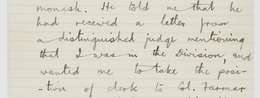 monish. He told me that he
had received a letter from
a distinguished judge mentioning
that I was in the Division, and
wanted me to take the posi-
-tion of clerk to Col. Farmar